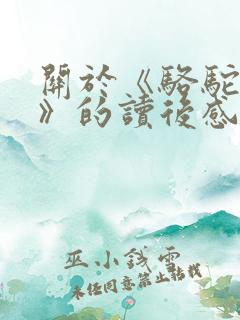 關於《駱駝
》的讀後感
巫小錢電
未經同意禁止轉載